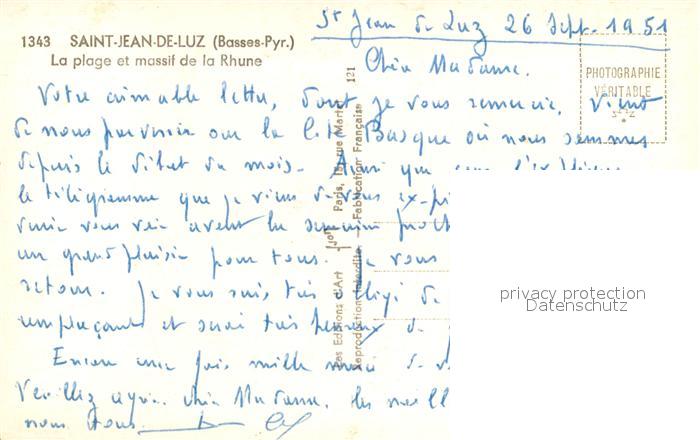 St Jean de Luz 26 Sept. 1951
1343 SAINT-JEAN-DE-LUZ (Basses-Pyr.)
La plage et massif de la Rhune
Chère Madame,
PHOTOGRAPHIE
VÉRITABLE
Votre aimable lettre, dont je vous remercie, vient
de nous parvenir sur la Côte Basque où nous sommes
depuis le début du mois. Ainsi que
le télégramme que je viens de vous
vous voir avant la semaine
un grand plaisir pour tous. Je vous
retour. Je vous suis très obligé de
remplaçante et serai très heureux de
Encore une fois mille merci de
Veuillez agréer, chère Madame, les meill
nous tous.
121
Les Editions d'Art Paris, rue Marte
Reproduction Interdite. — Fabrication Française
privacy protection
Datenschutz